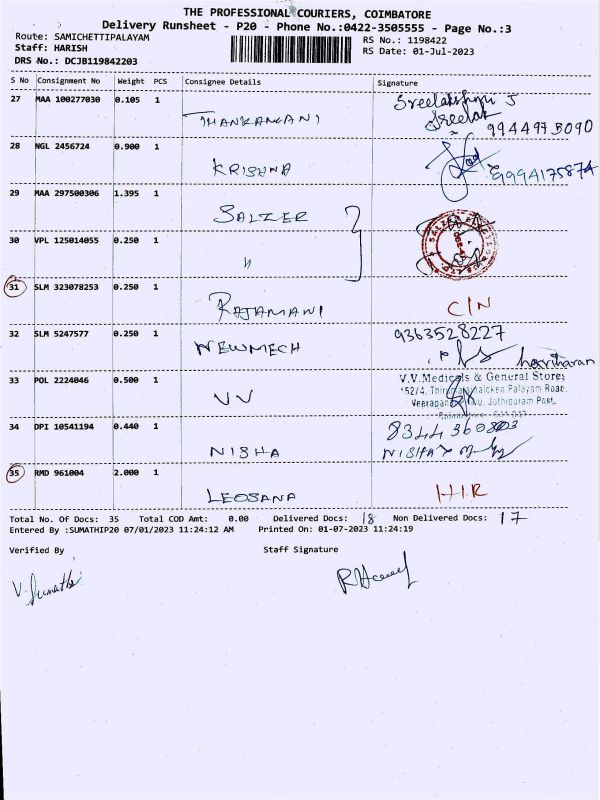 THE PROFESSIONAL COURIERS, COIMBATORE
Delivery Runsheet - P20 - Phone No.:0422-3505555 - Page No.:3
Route: SAMICHETTIPALAYAM
RS No.: 1198422
Staff: HARISH
RS Date: 01-Jul-2023
DRS No.: DCJB119842203
S No Consignment No Weight PCS Consignee Details Signature
27 MAA 100277030 0.105 1
THANKAMANI
Sreelakshmi J
Sreelak
9944975090
28 NGL 2456724 0.900 1
KRISHNA
9994175874
29 MAA 297500306 1.395 1
SALZER
30 VPL 125014055 0.250 1
"
31 SLM 323078253 0.250 1
RAJAMANI C/N
32 SLM 5247577 0.250 1
NEWMECH
9363528227
hariharan
33 POL 2224046 0.500 1
VV
V.V.Medicals & General Stores
Palayam Road.
Jothipuram Post.
34 DPI 10541194 0.440 1
NISHA
8344360803
NISHA
35 RMD 961004 2.000 1
LEOSANA H.I.R
Total No. Of Docs: 35 Total COD Amt: 0.00 Delivered Docs: 18 Non Delivered Docs: 17
Entered By :SUMATHIP20 07/01/2023 11:24:12 AM Printed On: 01-07-2023 11:24:19
Verified By Staff Signature
V. Sumathi